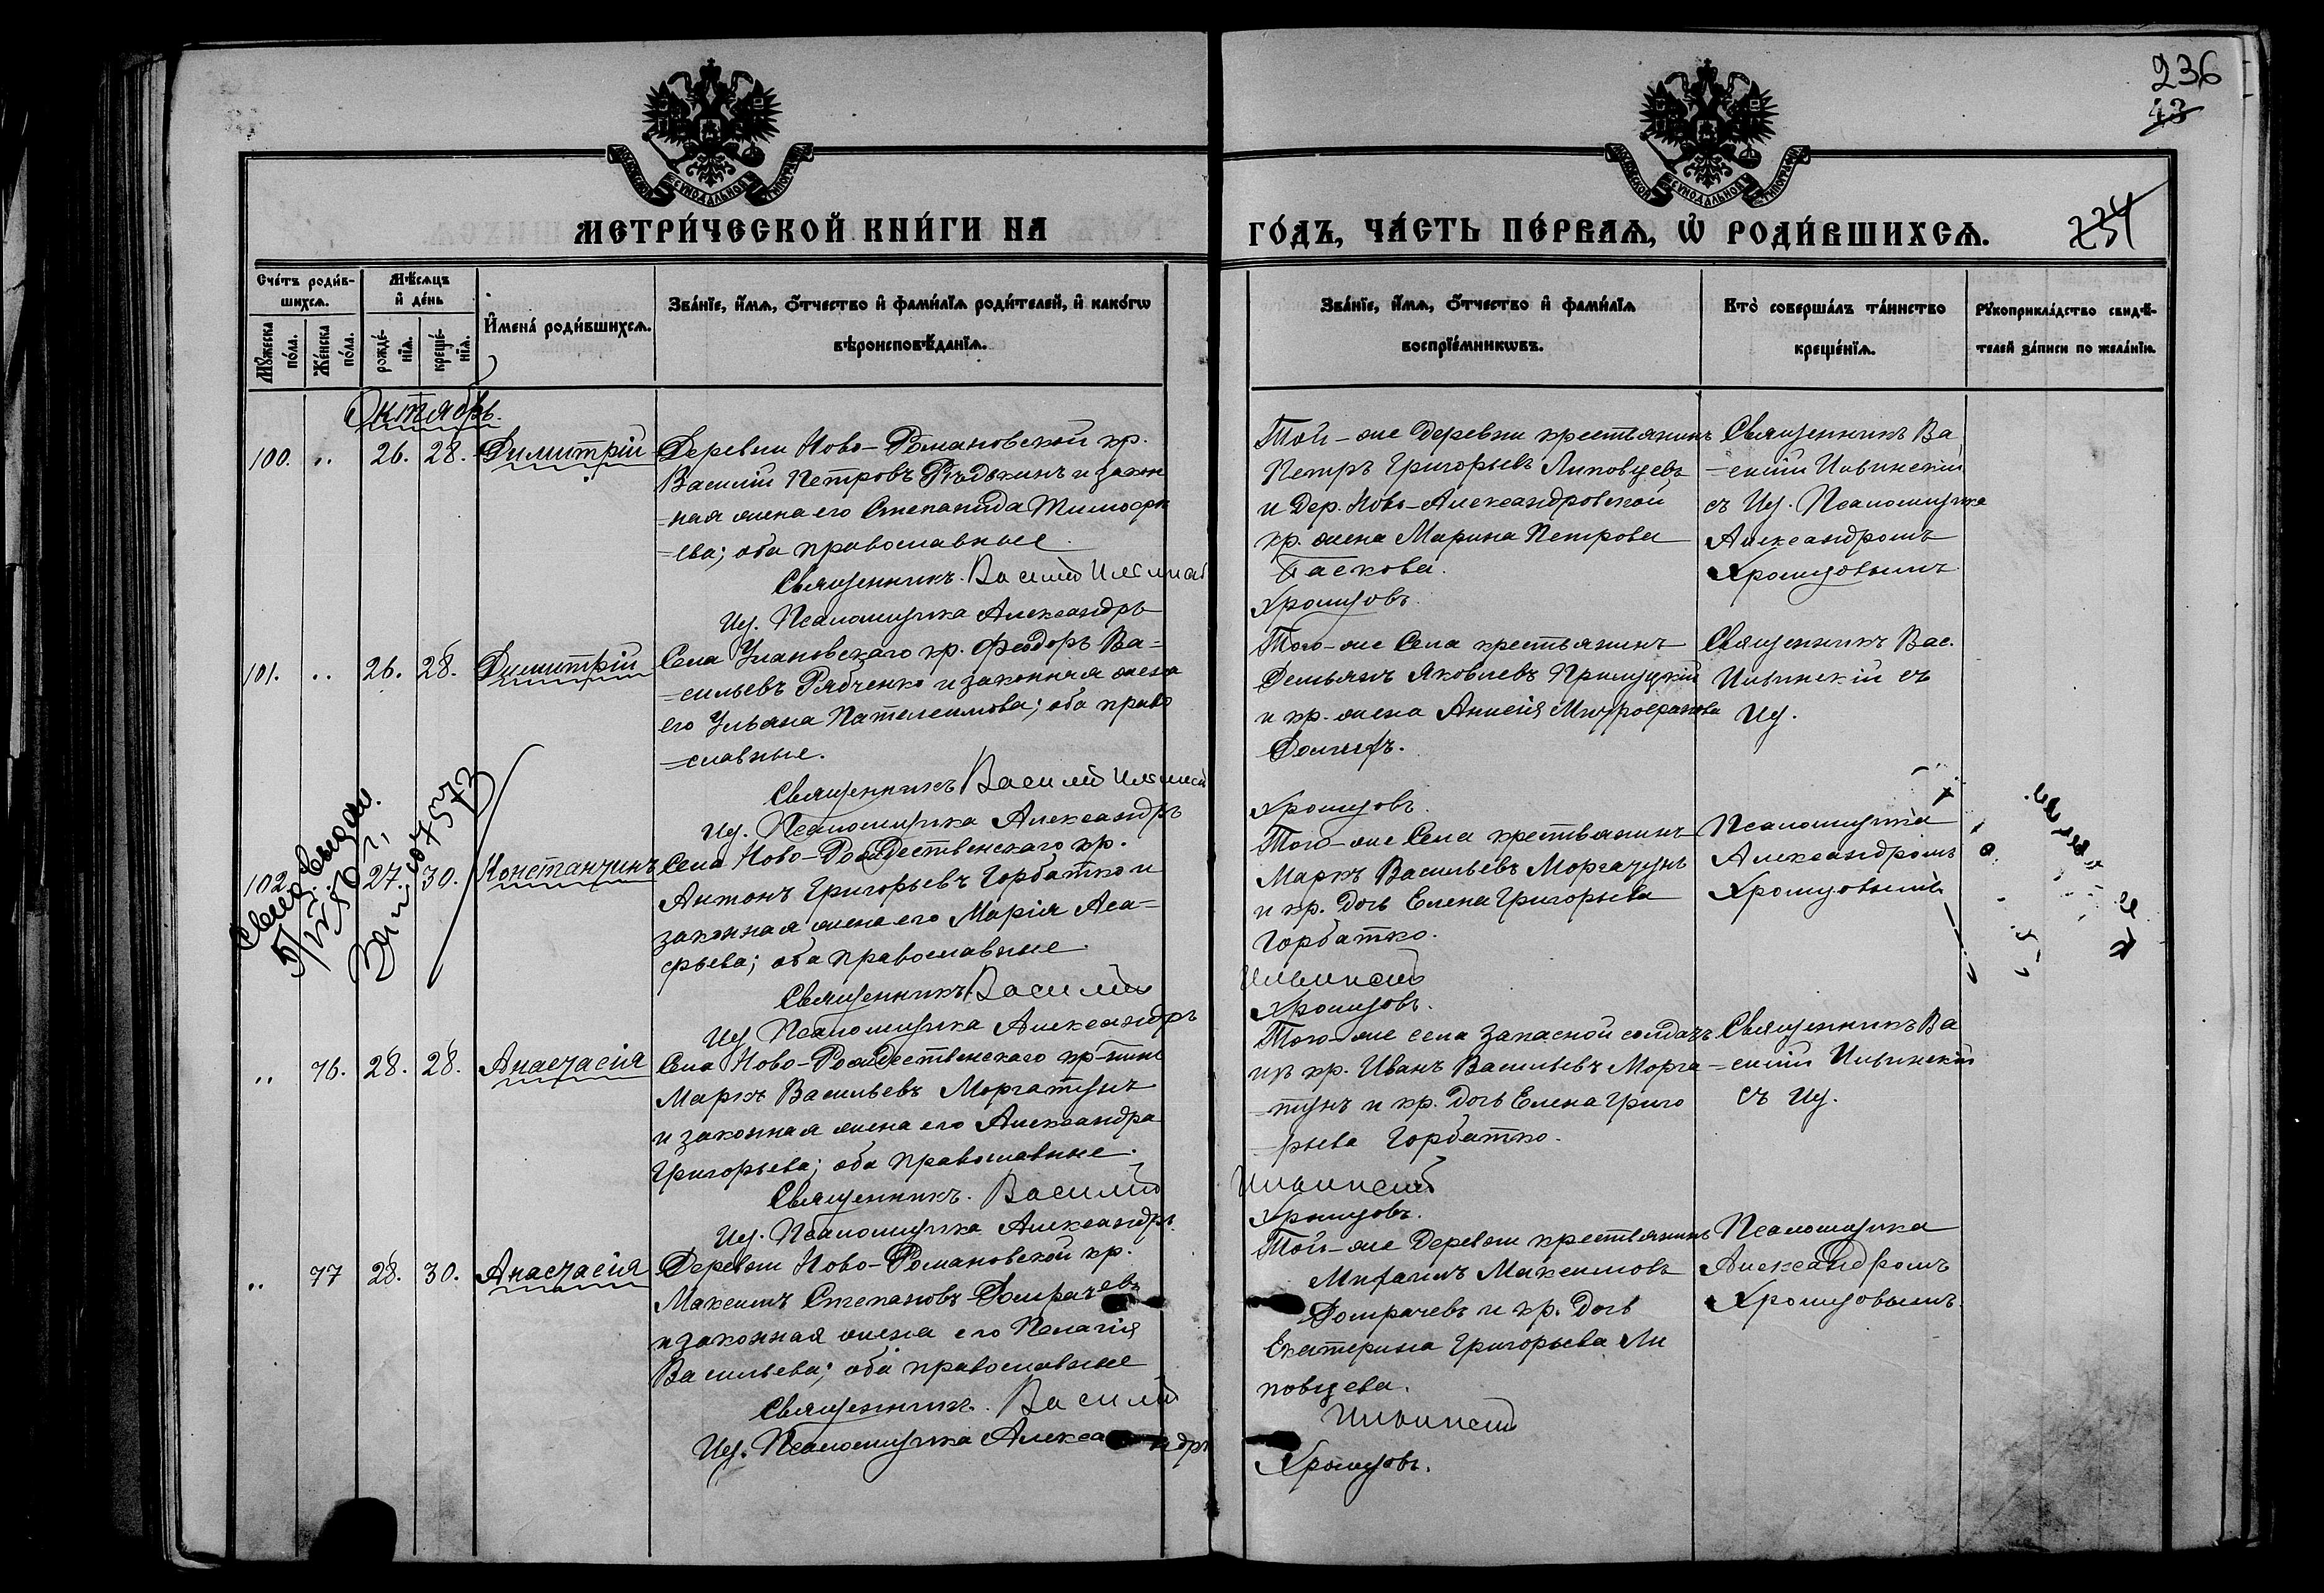 236
43
МОСКОВСКОЙ СѴНОДАЛЬНОЙ ТИПОГРАФІИ
МОСКОВСКОЙ СѴНОДАЛЬНОЙ ТИПОГРАФІИ
МЕТРИ́ЧЕСКОЙ КНИ́ГИ НА
ГО́ДЪ, ЧА́СТЬ ПЕ́РВАѦ, Ѡ҆ РОДИ́ВШИХСѦ.
234
Сче́тъ роди́в-
шихсѧ.
Мꙋ́жеска
по́ла.
Же́нска
по́ла.
Мѣ́сѧцъ
и҆ де́нь
рожде́-
нїѧ.
креще́-
нїѧ.
И҆мена̀ роди́вшихсѧ.
Зва́нїе, и҆́мѧ, ѻ҆́тчество и҆ фами́лїѧ роди́телей, и҆ како́гѡ
вѣроисповѣ́данїѧ.
Зва́нїе, и҆́мѧ, ѻ҆́тчество и҆ фами́лїѧ
воспрїе́мникѡвъ.
Кто̀ соверша́лъ та́инство
креще́нїѧ.
Рꙋкоприкла́дство свидѣ́-
телей за́писи по жела́нїю.
Октябрь.
100. „ 26. 28. Димитрій
Деревни Ново-Романовской кр.
Василій Петровъ Рѣдькинъ и закон
=ная жена его Степанида Тимофе
=ева; оба православные.
Священникъ. Василій Ильинскій
И. д. Псаломщика Александръ
Той-же деревни крестьянинъ
Петръ Григорьевъ Липовцевъ
и дер. Ново-Александровской
кр. жена Марина Петрова
Паскова.
Хромцовъ.
Священникъ Ва
=силій Ильинскій
съ И. д. Псаломщика
Александромъ
Хромцовымъ
101. „ 26. 28. Димитрій
Села Улановскаго кр. Феодоръ Ва=
=сильевъ Рябченко и законная жена
его Ульяна Пателеимова; оба право
=славные.
Священникъ Василій Ильинскій
И. д. Псаломщика Александръ
Того-же Села крестьянинъ
Демьянъ Яковлевъ Прилуцкій
и кр. жена Анисія Митрофанова
Хромцовъ.
Священникъ Вас.
Ильинскій съ
И. д.
Псаломщика
Александромъ
Хромцовымъ
102. 27. 30. Константинъ
Села Ново-Рождественскаго кр.
Антонъ Григорьевъ Горбатко и
законная жена его Марія Аса=
фьева; оба православные.
Священникъ Василій
И. д. Псаломщика Александръ
Того-же Села крестьянинъ
Маркъ Васильевъ Моргатунъ
и кр. дочь Елена Григорьева
Горбатко.
Ильинскій
Хромцовъ.
„ 76. 28. 28. Анастасія
Села Ново-Рождественскаго кр-нинъ
Маркъ Васильевъ Моргатунъ
и законная жена его Александра
Григорьева; оба православные.
Священникъ. Василій
И. д. Псаломщика Александръ
Того-же села запасной солдатъ
изъ кр. Иванъ Васильевъ Морга
=тунъ и кр. дочь Елена Григо
=рьева Горбатко.
Ильинскій
Хромцовъ.
Священникъ Ва
=силій Ильинскій
съ И. д.
Псаломщика
Александромъ
Хромцовымъ.
„ 77 28. 30. Анастасія
Деревни Ново-Романовской кр.
Максимъ Степановъ Домрачевъ
и законная жена его Пелагія
Васильева; оба православные
Священникъ. Василій
И. д. Псаломщика Александръ
Той-же деревни крестьянинъ
Михаилъ Максимовъ
Домрачевъ и кр. дочь
Екатерина Григорьева Ли
повцева.
Ильинскій
Хромцовъ.